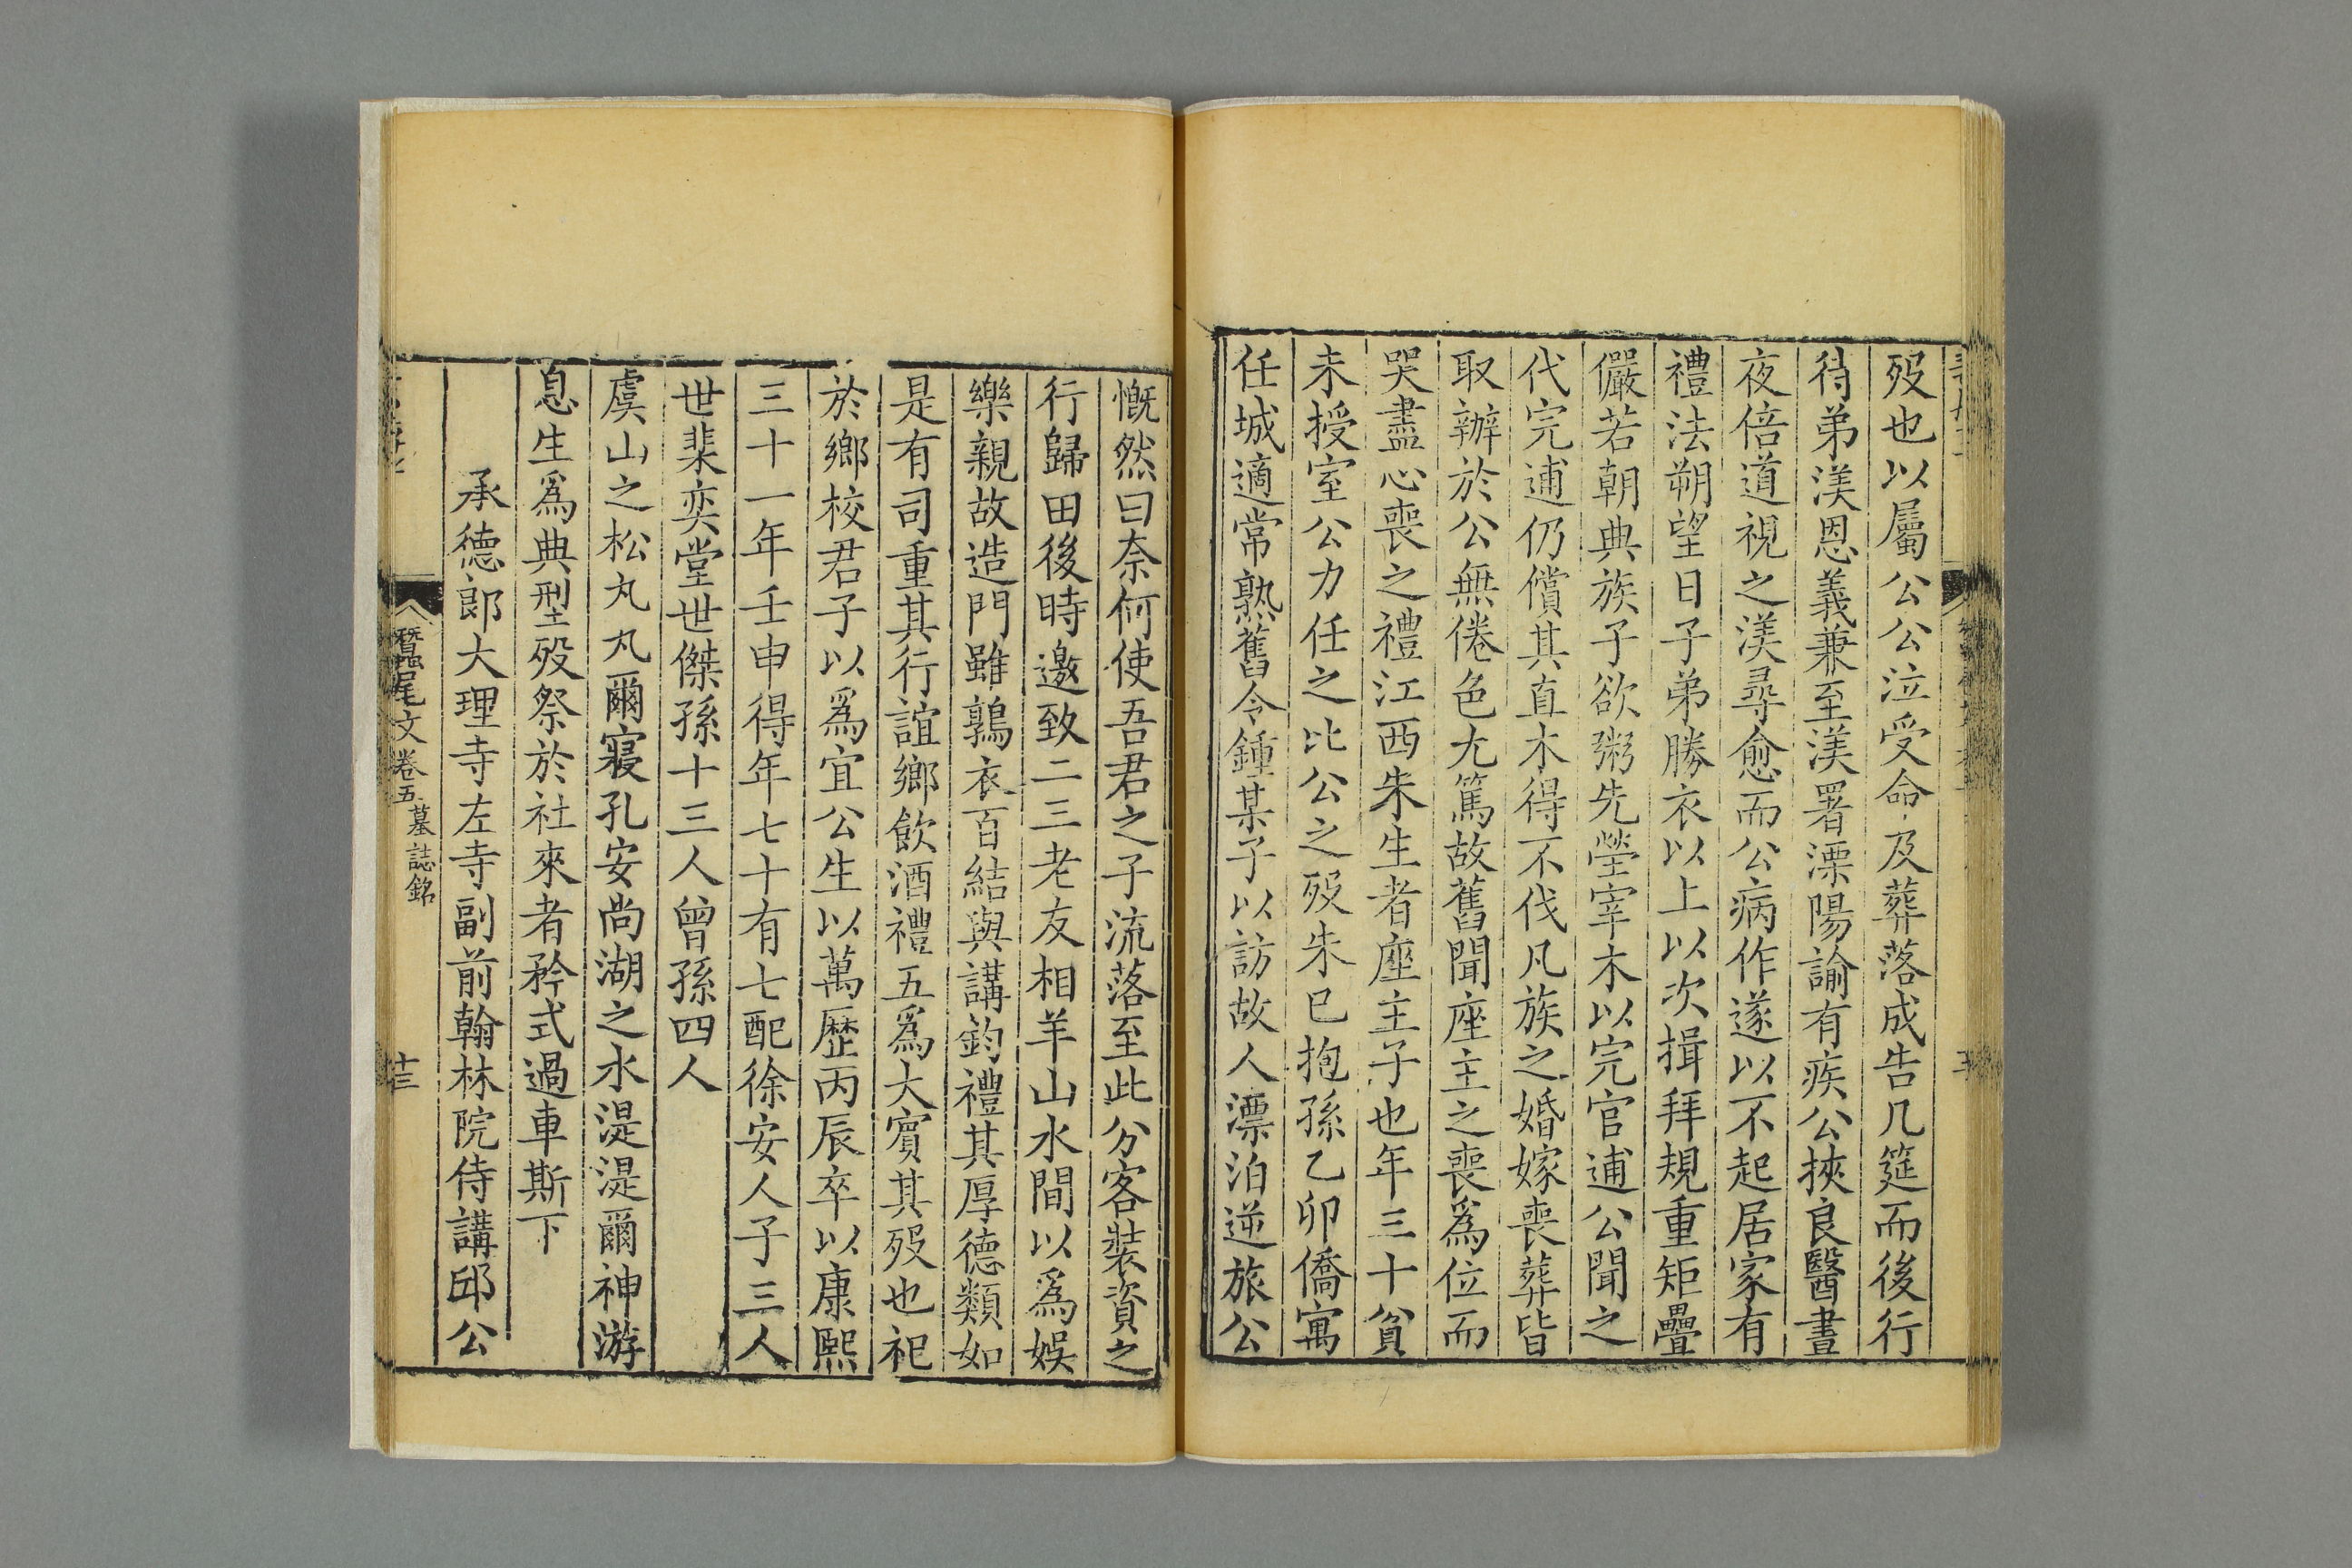 歿也以屬公公泣受命及葬落成告几筵而後行
待弟渼恩義兼至渼署溧陽諭有疾公挾良醫晝
夜倍道視之渼尋愈而公病作遂以不起居家有
禮法朔望日子弟勝衣以上以次揖拜規重矩疊
儼若朝典族子欲粥先塋宰木以完官逋公聞之
代完逋仍償其直木得不伐凡族之婚嫁喪葬皆
取辦於公無倦色尤篤故舊聞座主之喪爲位而
哭盡心喪之禮江西朱生者座主子也年三十貧
未授室公力任之比公之歿朱已抱孫乙卯僑寓
任城適常熟舊令鍾某子以訪故人漂泊逆旅公
慨然曰奈何使吾君之子流落至此分客裝資之
行歸田後時邀致二三老友相羊山水間以爲娛
樂親故造門雖鶉衣百結與講鈞禮其厚德類如
是有司重其行誼鄉飲酒禮五爲大賓其歿也祀
於鄉校君子以爲宜公生以萬歷丙辰卒以康熙
三十一年壬申得年七十有七配徐安人子三人
世棐奕堂世傑孫十三人曾孫四人
虞山之松丸丸爾寢孔安尚湖之水湜湜爾神游
息生爲典型歿祭於社來者矜式過車斯下
承德郎大理寺左寺副前翰林院侍講邱公
蠶尾文 卷五 墓誌銘
十三